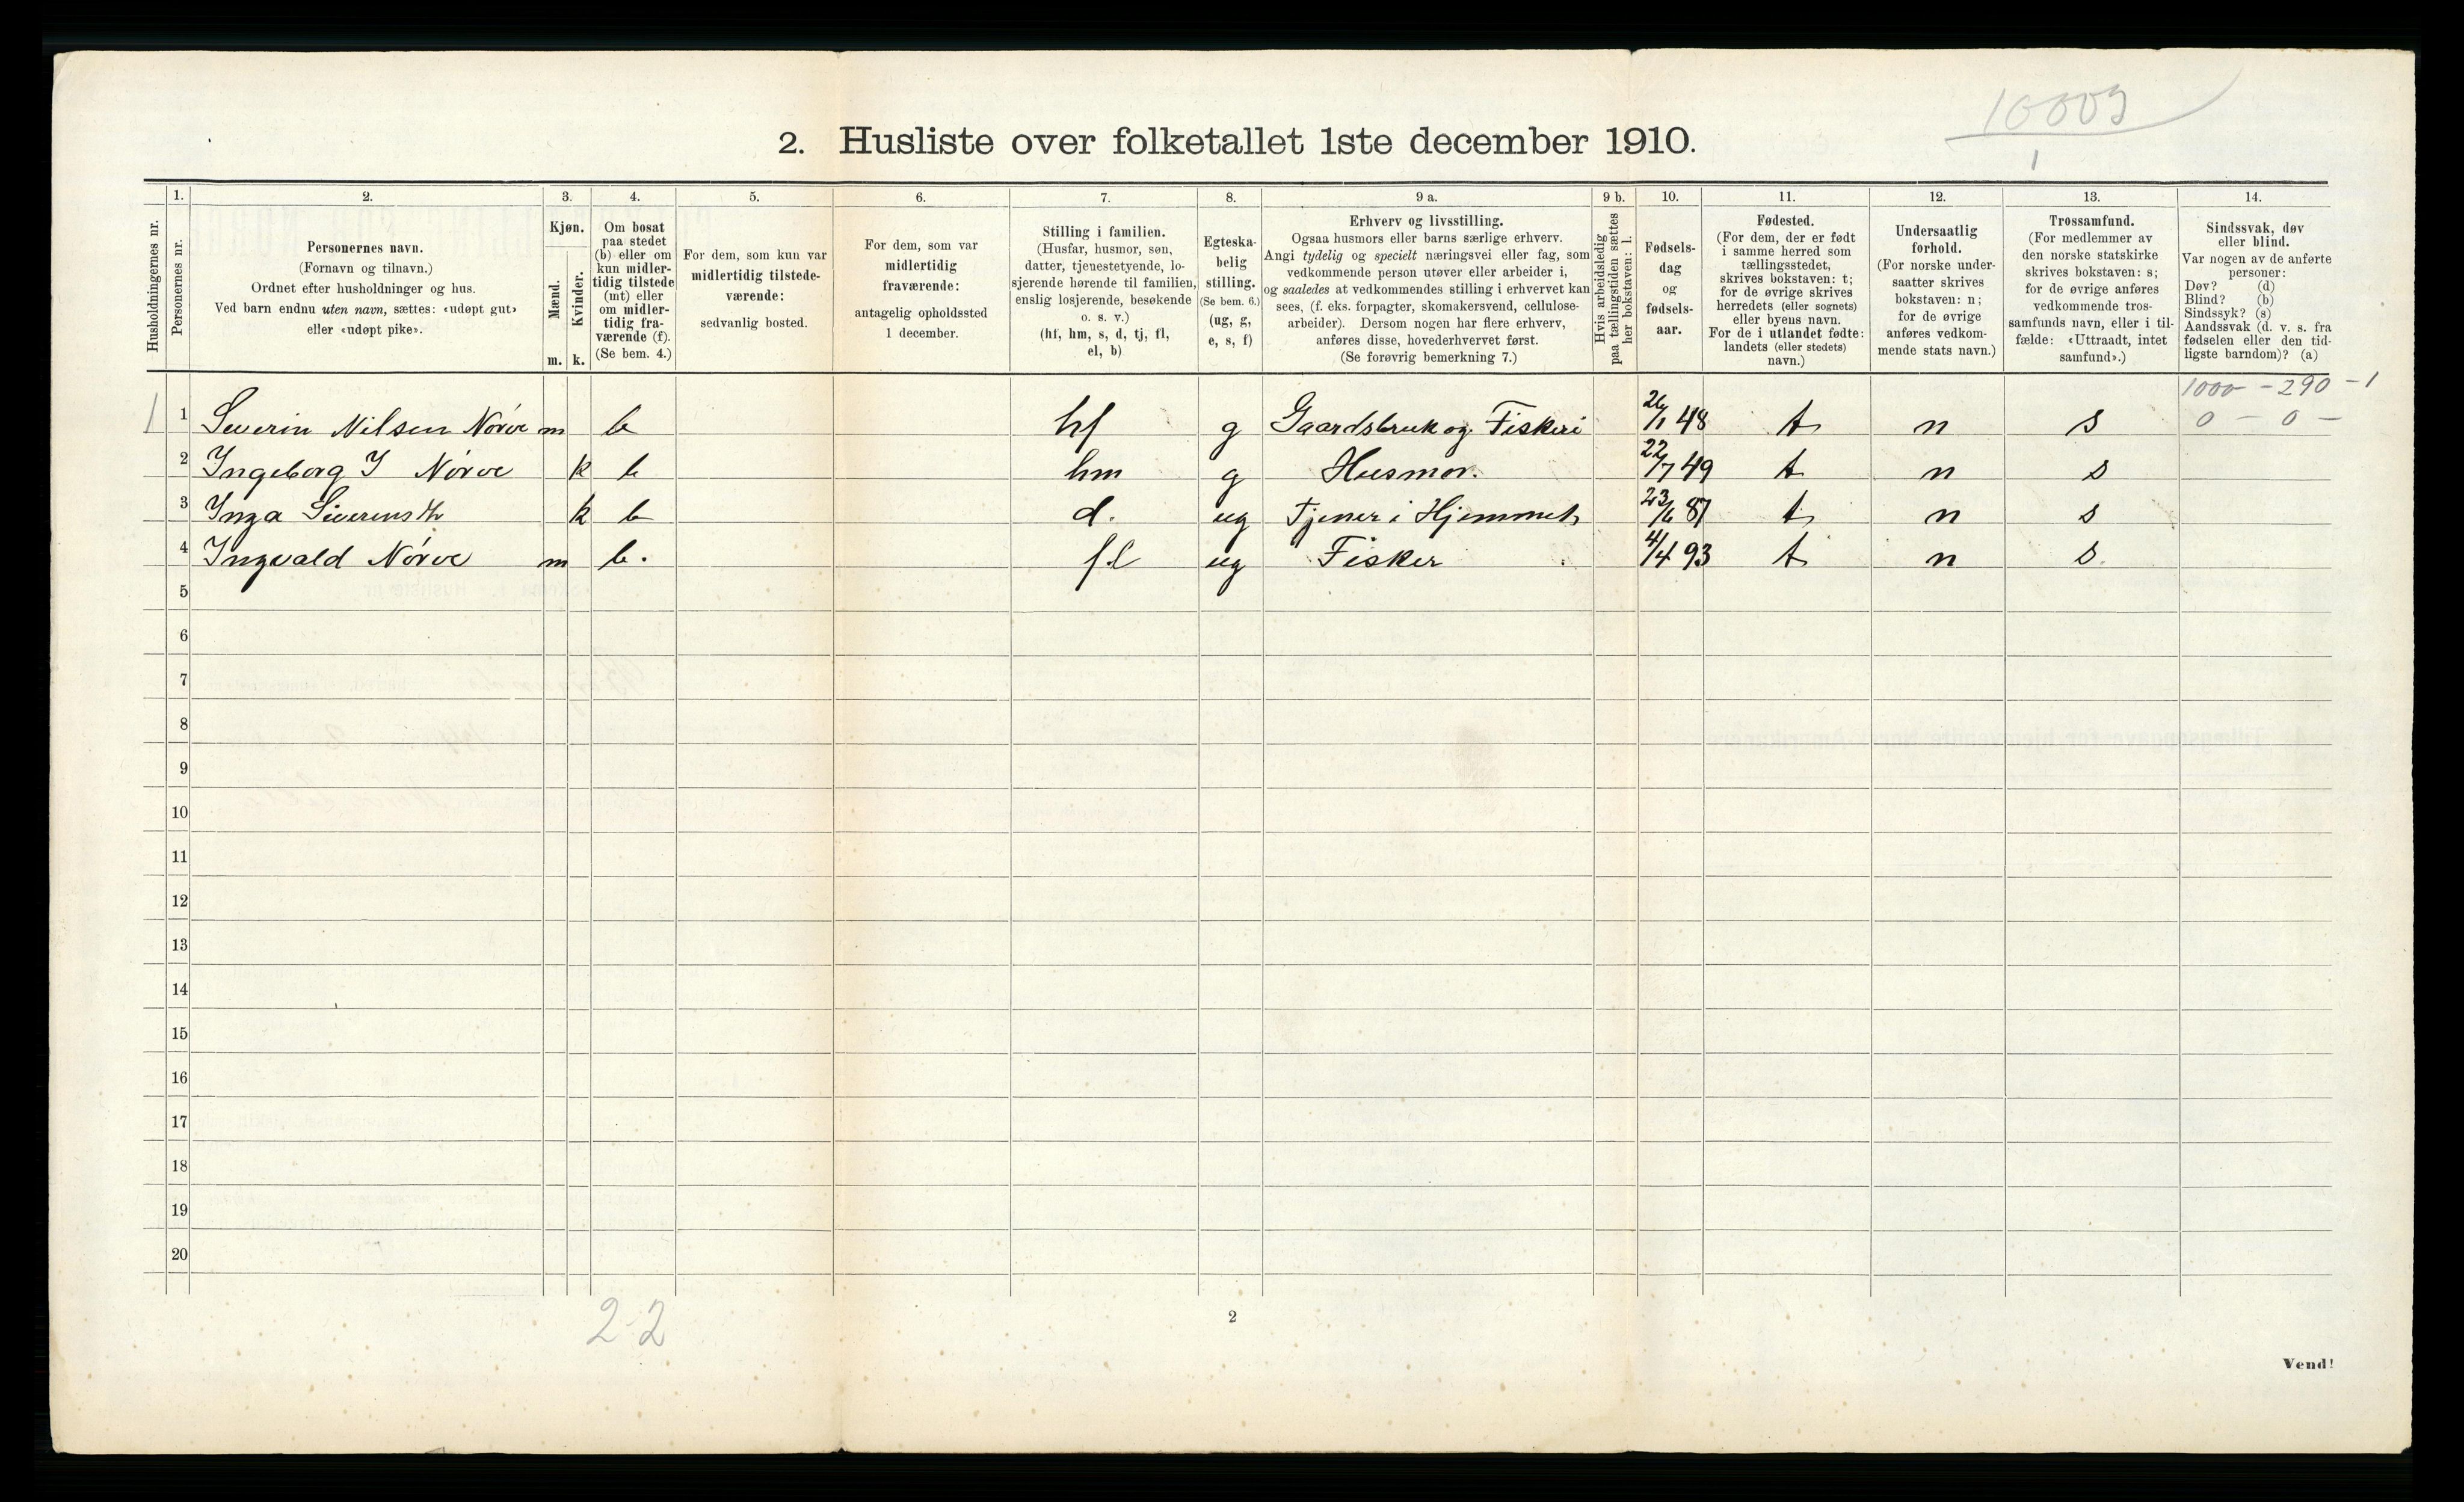 10009
1
2. Husliste over folketallet 1ste december 1910.
Husholdningernes nr.
1.
Personernes nr.
2.
Personernes navn.
(Fornavn og tilnavn.)
Ordnet efter husholdninger og hus.
Ved barn endnu uten navn, sættes: «udøpt gut»
eller «udøpt pike».
3.
Kjøn.
Mænd.
Kvinder.
m. k.
4.
Om bosat
paa stedet
(b) eller om
kun midler-
tidig tilstede
(mt) eller
om midler-
tidig fra-
værende (f).
(Se bem. 4.)
5.
For dem, som kun var
midlertidig tilstede-
værende:
sedvanlig bosted.
6.
For dem, som var
midlertidig
fraværende:
antagelig opholdssted
1 december.
7.
Stilling i familien.
(Husfar, husmor, søn,
datter, tjenestetyende, lo-
sjerende hørende til familien,
enslig losjerende, besøkende
o. s. v.)
(hf, hm, s, d, tj, fl,
el, b)
8.
Egteska-
belig
stilling.
(Se bem. 6.)
(ug, g,
e, s, f)
9 a.
Erhverv og livsstilling.
Ogsaa husmors eller barns særlige erhverv.
Angi tydelig og specielt næringsvei eller fag, som
vedkommende person utøver eller arbeider i,
og saaledes at vedkommendes stilling i erhvervet kan
sees, (f. eks. forpagter, skomakersvend, cellulose-
arbeider). Dersom nogen har flere erhverv,
anføres disse, hovederhvervet først.
(Se forøvrig bemerkning 7.)
9 b.
Hvis arbeidsledig
paa tællingstiden sættes
her bokstaven: l.
10.
Fødsels-
dag
og
fødsels-
aar.
11.
Fødested.
(For dem, der er født
i samme herred som
tællingsstedet,
skrives bokstaven: t;
for de øvrige skrives
herredets (eller sognets)
eller byens navn.
For de i utlandet fødte:
landets (eller stedets)
navn.)
12.
Undersaatlig
forhold.
(For norske under-
saatter skrives
bokstaven: n;
for de øvrige
anføres vedkom-
mende stats navn.)
13.
Trossamfund.
(For medlemmer av
den norske statskirke
skrives bokstaven: s;
for de øvrige anføres
vedkommende tros-
samfunds navn, eller i til-
fælde: «Uttraadt, intet
samfund».)
14.
Sindssvak, døv
eller blind.
Var nogen av de anførte
personer:
Døv? (d)
Blind? (b)
Sindssyk? (s)
Aandssvak (d. v. s. fra
fødselen eller den tid-
ligste barndom)? (a)
1000 - 290 - 1
0 - 0 -
1 1 Severin Nilsen Nörve m b hf g Gaardsbruk og Fiskeri 26/1 48 t n s
2 Ingeborg I Nörve k b hm g Husmor. 22/7 49 t n s
3 Inga k b d. ug Tjener i Hjemmet 23/6 87 t n s
4 Ingvald Nörve m b. f.l ug Fisker 4/4 93 t n s.
5
6
7
8
9
10
11
12
13
14
15
16
17
18
19
20
2-2
2
Vend!